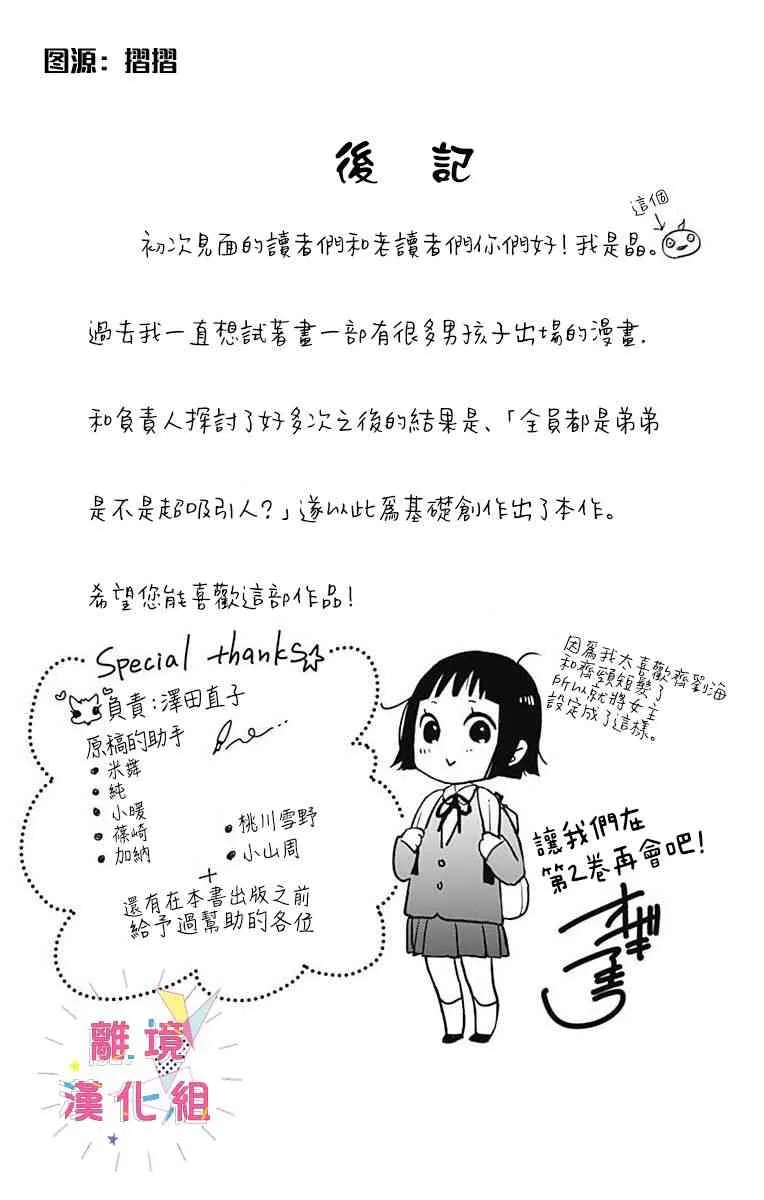 图源：摺摺
後 記
這個
初次見面的讀者們和老讀者們你們好！我是晶。
過去我一直想試著畫一部有很多男孩子出場的漫畫.
和負責人探討了好多次之後的結果是、「全員都是弟弟
是不是超吸引人？」遂以此為基礎創作出了本作。
希望您能喜歡這部作品！
Special thanks
負責：澤田直子
原稿的助手
• 米舞
• 純
• 小暖
• 葆崎
• 加納
• 桃川雪野
• 小山周
+
還有在本書出版之前
給予過幫助的各位
因為我太喜歡齊劉海
和齊頸短髮了
所以就將女主
設定成了這樣。
讓我們在
第2卷再會吧！
離境
漢化組